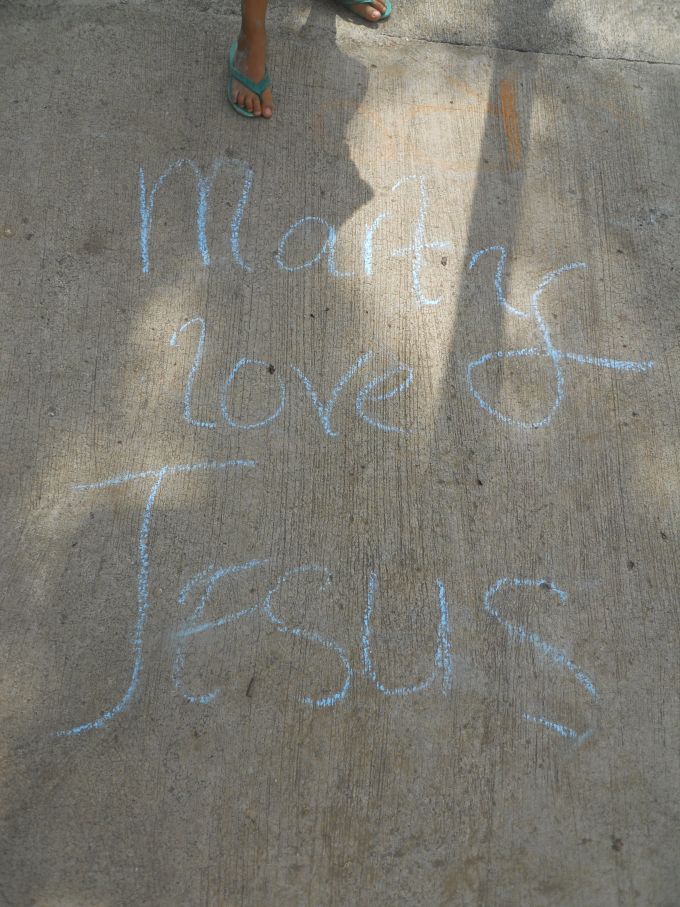 Marty
love
Jesus